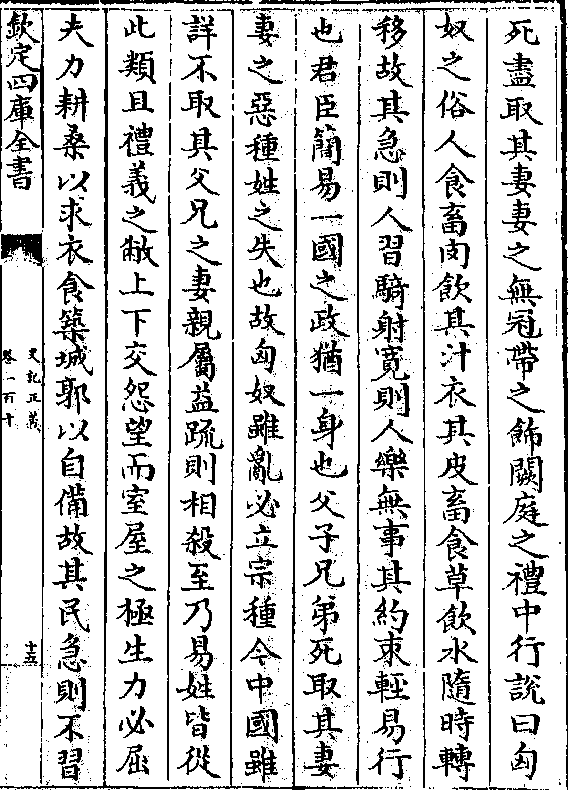 死盡取其妻妻之無冠帶之飾闕庭之禮中行說曰匈
奴之俗人食畜肉飲其汁衣其皮畜食草飲水隨時轉
移故其急則人習騎射寛則人樂無事其約束輕易行
也君臣簡易一國之政猶一身也父子兄弟死取其妻
妻之惡種姓之失也故匈奴雖亂必立宗種今中國雖
詳不取其父兄之妻親屬益疏則相殺至乃易姓皆從
此類且禮義之敝上下交怨望而室屋之極生力必屈
夫力耕桑以求衣食築城郭以自備故其民急則不習
欽定四庫全書
史記正義
卷一百十
十五